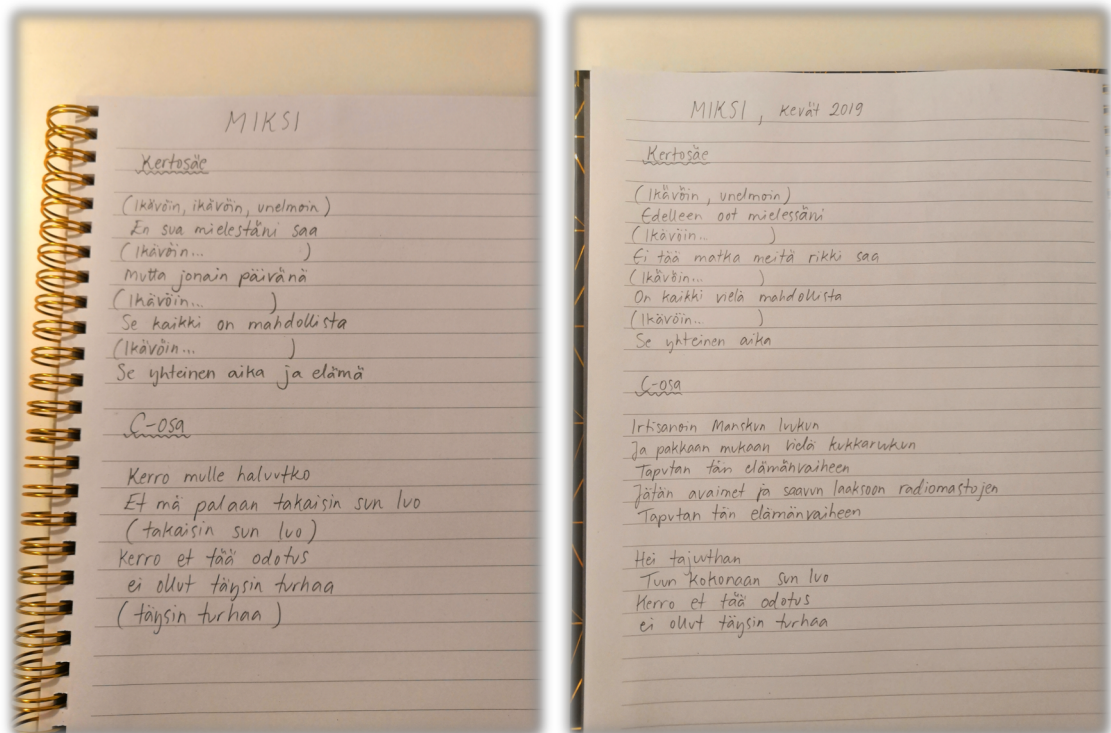 MIKSI
Kertosäe
(Ikävöin, ikävöin, unelmoin)
En sua mielestäni saa
(Ikävöin... )
Mutta jonain päivänä
(Ikävöin... )
Se kaikki on mahdollista
(Ikävöin... )
Se yhteinen aika ja elämä
C-osa
Kerro mulle haluutko
Et mä palaan takaisin sun luo
(takaisin sun luo)
Kerro et tää odotus
ei ollut täysin turhaa
(täysin turhaa)
MIKSI, kevät 2019
Kertosäe
(Ikävöin, unelmoin)
Edelleen oot mielessäni
(Ikävöin... )
Ei tää matka meitä rikki saa
(Ikävöin... )
On kaikki vielä mahdollista
(Ikävöin... )
Se yhteinen aika
C-osa
Irtisanoin Manskun luukun
Ja pakkaan mukaan vielä kukkaruukun
Taputan tän elämänvaiheen
Jätän avaimet ja saavun laaksoon radiomastojen
Taputan tän elämänvaiheen
Hei tajuuthan
Tuun kokonaan sun luo
Kerro et tää odotus
ei ollut täysin turhaa